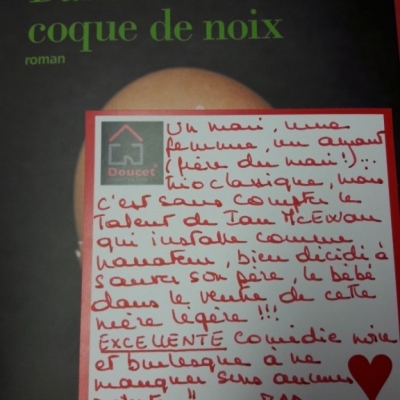 coque de noix
roman
Doucet
Un mari, une
femme, un amant
(frère du mari!)...
Trio classique, mais
c'est sans compter le
Talent de Ian McEwan
qui installe comme
narrateur, bien décidé à
sauver son père, le bébé
dans le ventre de cette
mère légère !!!
EXCELLENTE comédie noire
et burlesque à ne
manquer sous aucun